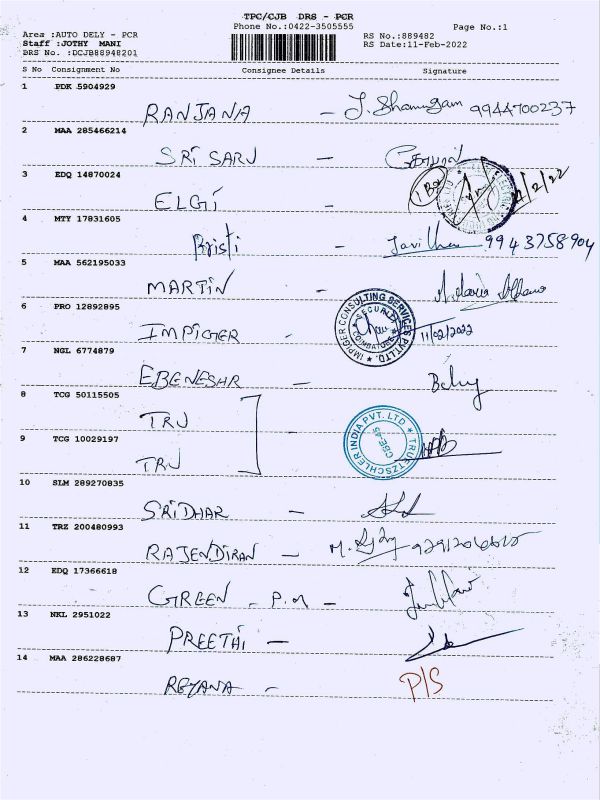 TPC/CJB DRS - PCR
Phone No.:0422-3505555
Page No.:1
Area :AUTO DELY - PCR
Staff :JOTHY MANI
DRS No. :DCJB88948201
RS No.:889482
RS Date:11-Feb-2022
S No Consignment No Consignee Details Signature
1 PDK 5904929
RANJANA - J. Shanmugam 9944700237
2 MAA 285466214
SRI SARU -
3 EDQ 14870024
ELGI -
4 MTY 17831605
- 9943758904
5 MAA 562195033
MARTIN -
6 PRO 12892895
IMPIGER - IMPIGER CONSULTING SERVICES PVT.LTD. SECURITY COIMBATORE 11/02/2022
7 NGL 6774879
EBENESHR -
8 TCG 50115505
TRU
9 TCG 10029197
TRU - TRUETZSCHLER INDIA PVT. LTD CBE-45
10 SLM 289270835
SRIDHAR -
11 TRZ 200480993
RAJENDIRAN -
12 EDQ 17366618
GREEN - P.M -
13 NKL 2951022
PREETHI -
14 MAA 286228687
REYANA - P/S